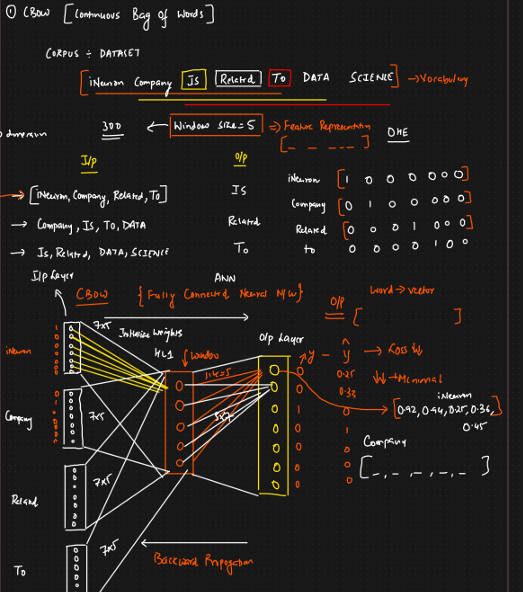 ① CBOW [Continuous Bag of Words]
CORPUS ÷ DATASET
[iNeuron Company Is Related To DATA SCIENCE] → Vocabulary
300 ← Window size = 5 ⇒ Feature Representation
[_ _ _ _ _] OHE
I/p O/p
[iNeuron, Company, Related, To] Is
→ Company, Is, To, DATA Related
→ Is, Related, DATA, SCIENCE To
iNeuron [1 0 0 0 0 0 0]
Company [0 1 0 0 0 0 0]
Related [0 0 0 1 0 0 0]
to 0 0 0 0 1 0 0
I/p Layer ANN
CBOW {Fully Connected Neural N/w}
O/p Word → vector
[ ]
7x5 Initialize Weights
HL1 ↓ Window O/p Layer
y - ŷ → Loss ↓↓
↓↓ → Minimal
iNeuron
1x5 = 5
5x7
0 0.25
0 0.33
1 0
0 1
0 0
0 0
0 0
iNeuron
→ [0.92, 0.94, 0.25, 0.36,
0.45]
Company
[_, _, _, _, _]
Company 7x5
Related 7x5
To 7x5
← Backward Propogation